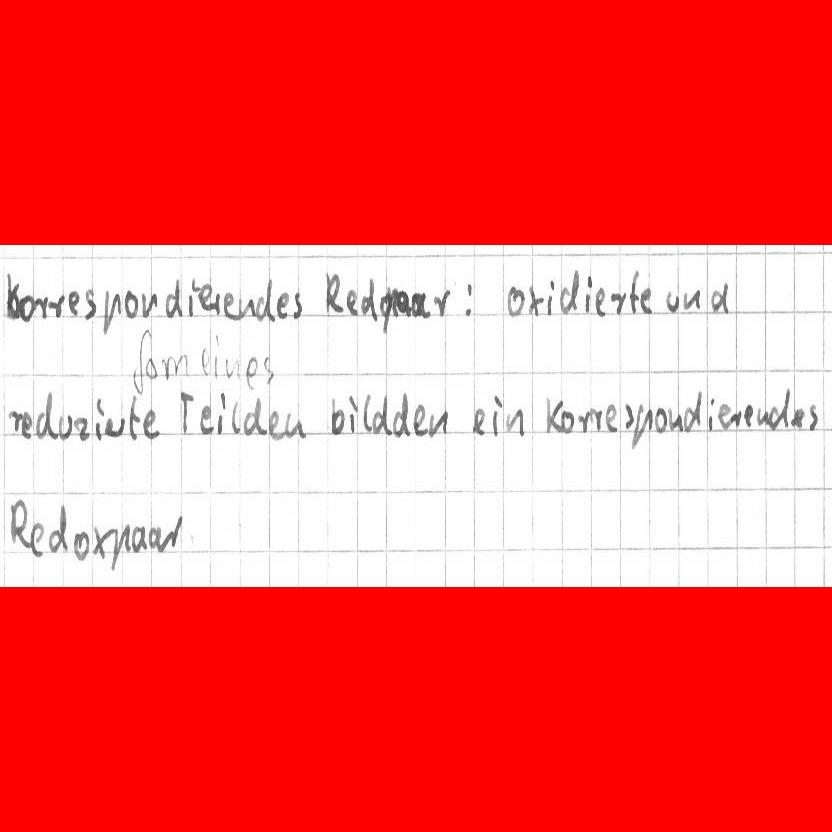 Korrespondierendes Redpaar: oxidierte und
form eines
reduzierte Teilden bildden ein Korrespondierendes
Redoxpaar